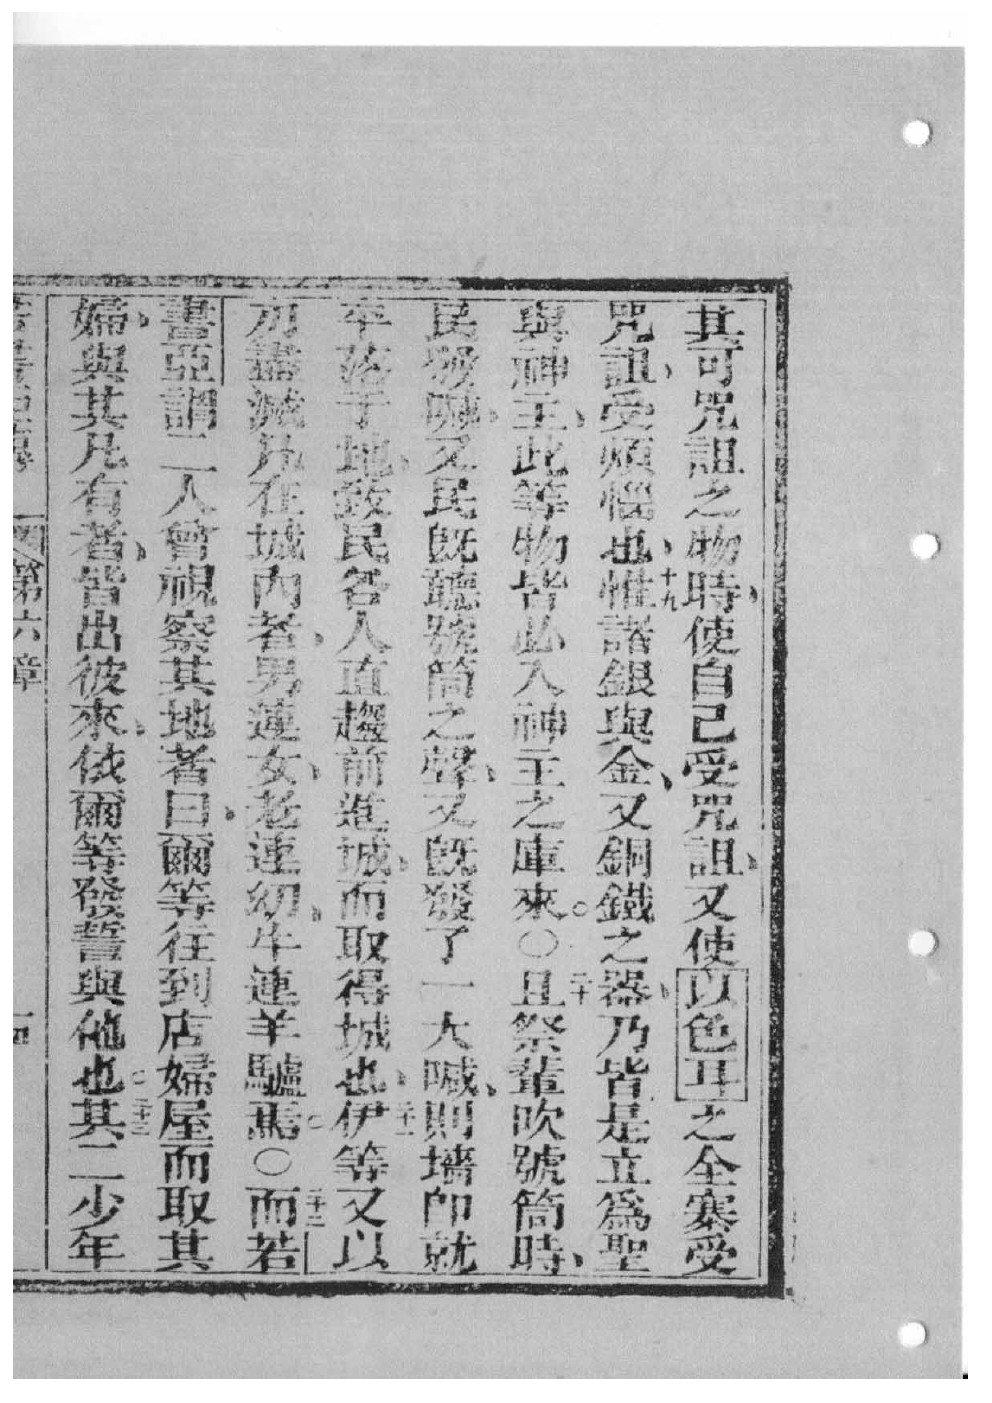 其可咒詛之物時、使自己受咒詛、又使以色耳之全寨受
咒詛、受煩惱也、十九惟諸銀與金、又銅鐵之器、乃皆是立爲聖
與神主、此等物皆必入神主之庫來。○二十且祭輩吹號筒時、
民發喊、又民既聽號筒之聲、又既發了一大喊、則墻卽就
卒落于地、致民各人直趨前進城、而取得城也、二十一伊等又以
刃盡滅凡在城內者、男連女、老連幼、牛連羊驢焉。○二十二而若
書亞謂二人曾視察其地者曰、爾等往到店婦屋而取其
婦、與其凡有者、皆出彼來、依爾等發誓與他也。二十三其二少年
若書亞傳 第六章